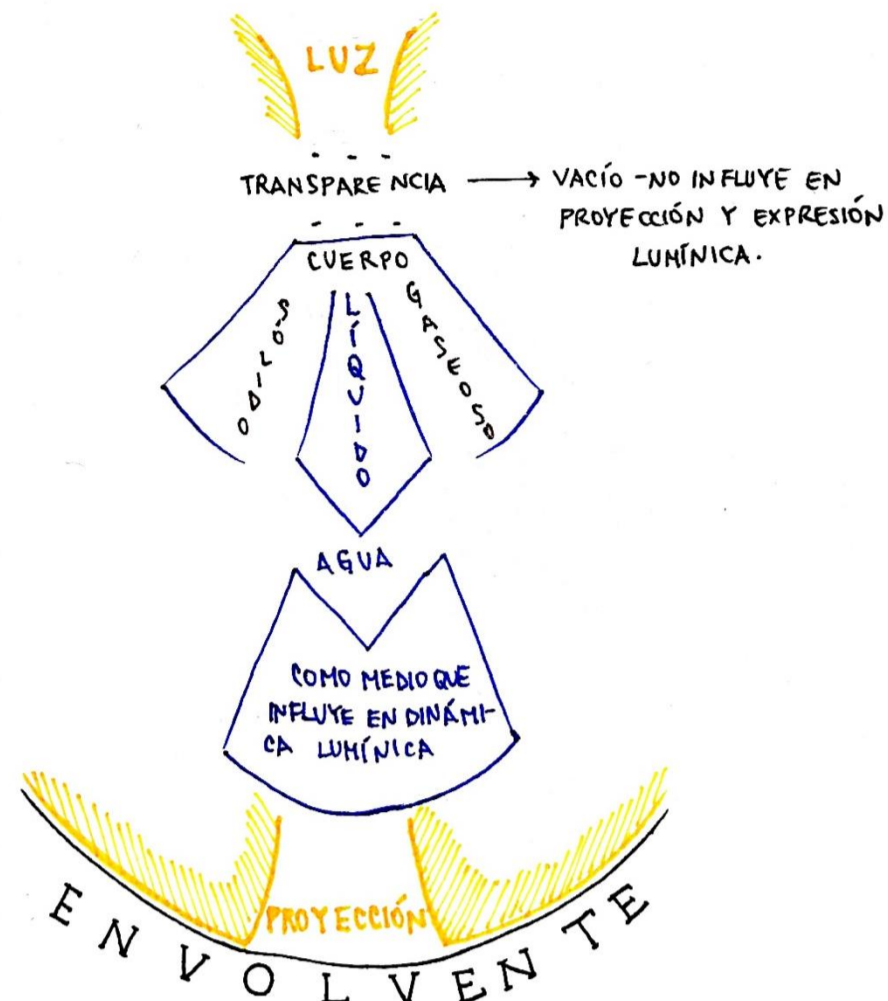 LUZ
TRANSPARENCIA → VACÍO - NO INFLUYE EN
PROYECCIÓN Y EXPRESIÓN
LUMÍNICA.
CUERPO
SÓLIDO
LÍQUIDO
GASEOSO
AGUA
COMO MEDIO QUE
INFLUYE EN DINÁMI-
CA LUMÍNICA
PROYECCIÓN
ENVOLVENTE